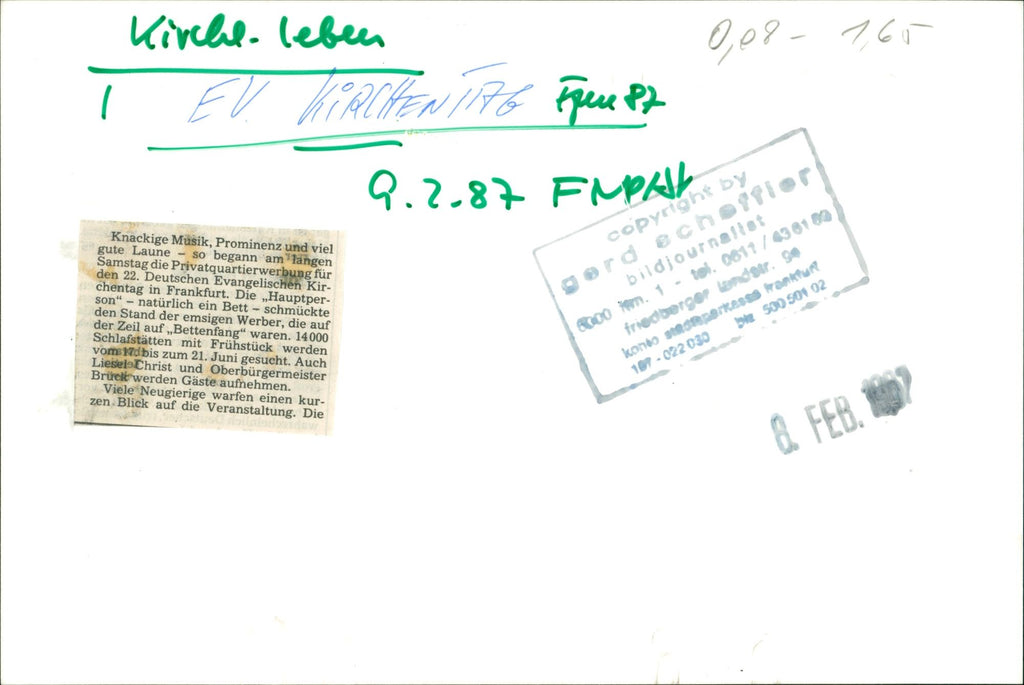 Kirchl. leben
0,08 - 1,65
1 EV KIRCHENTAG Ffm 87
9.2.87 FNP/AH
copyright by
gerd scheffler
bildjournalist
6000 ffm. 1 - tel. 0611 / 43 61 69
friedberger landstr. 9a
konto stadtsparkasse frankfurt
197 - 022 030 blz 500 501 02
8. FEB. 1987
Knackige Musik, Prominenz und viel
gute Laune – so begann am langen
Samstag die Privatquartierwerbung für
den 22. Deutschen Evangelischen Kir-
chentag in Frankfurt. Die „Hauptper-
son“ – natürlich ein Bett – schmückte
den Stand der emsigen Werber, die auf
der Zeil auf „Bettenfang“ waren. 14 000
Schlafstätten mit Frühstück werden
vom 17. bis zum 21. Juni gesucht. Auch
Liesel Christ und Oberbürgermeister
Brück werden Gäste aufnehmen.
Viele Neugierige warfen einen kur-
zen Blick auf die Veranstaltung. Die